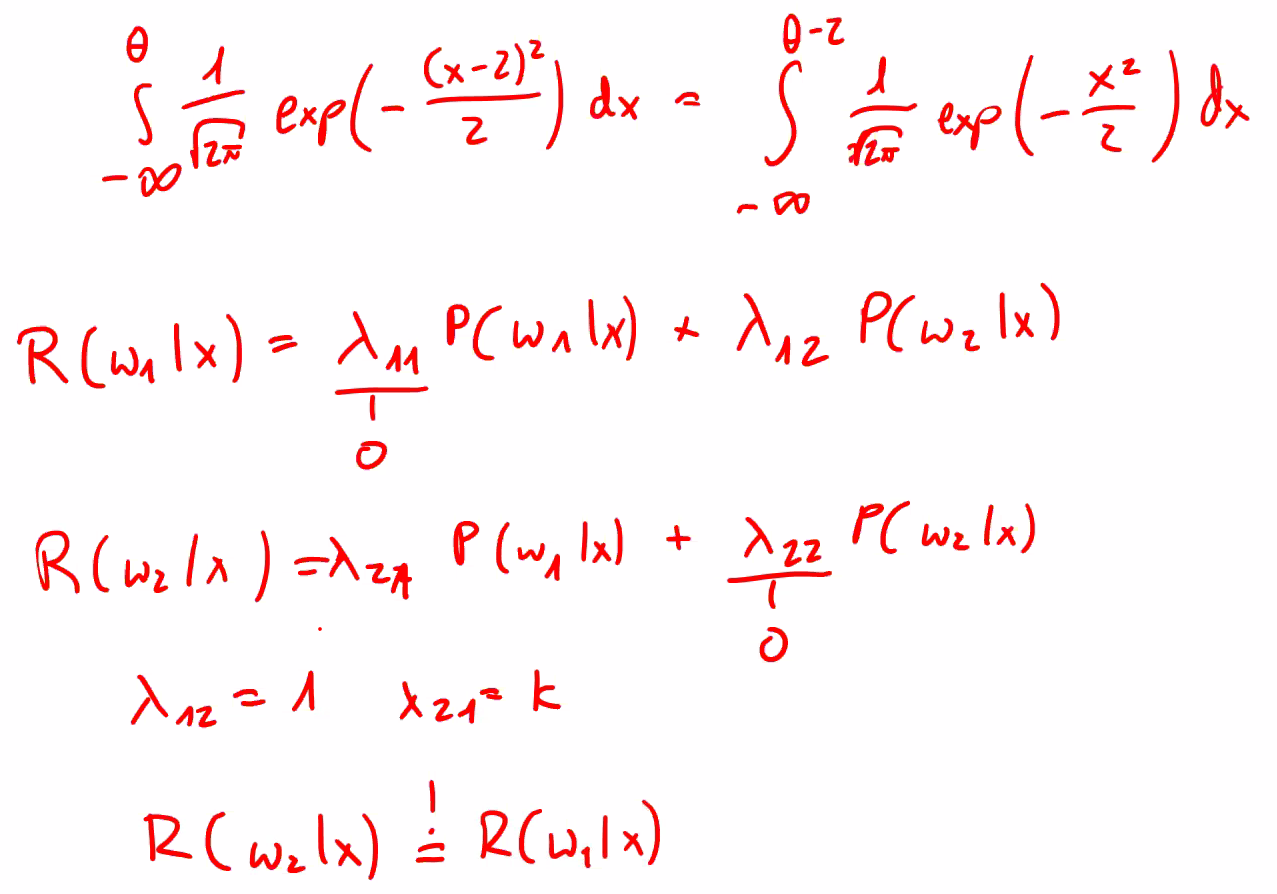 ∫_{-∞}^{θ} 1/√(2π) exp(-(x-2)²/2) dx = ∫_{-∞}^{θ-2} 1/√(2π) exp(-x²/2) dx
R(ω₁|x) = λ₁₁ P(ω₁|x) + λ₁₂ P(ω₂|x)
0
R(ω₂|x) = λ₂₁ P(ω₁|x) + λ₂₂ P(ω₂|x)
0
λ₁₂ = 1 x₂₁ = k
R(ω₂|x) =! R(ω₁|x)